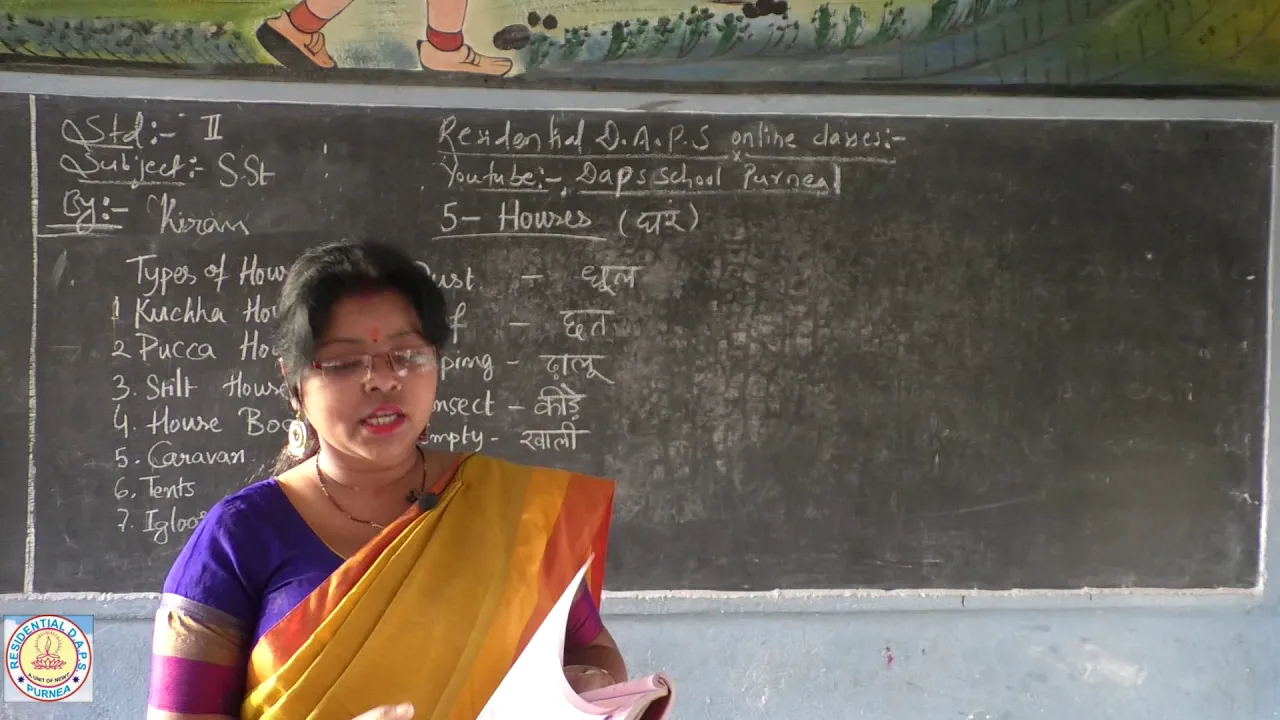 Std:- II
Subject:- S.St
By:- Kiran
Residential D.A.P.S online classes:-
Youtube:- Daps school Purnea
5- Houses (घर)
Types of Hous
1 Kuchha Hou
2 Pucca Hou
3. Stilt House
4. House Boa
5. Caravan
6. Tents
7. Igloos
ust - धूल
f - छत
ping - ढ़ालू
nsect - कीड़े
mpty - खाली
RESIDENTIAL D.A.P.S
PURNEA